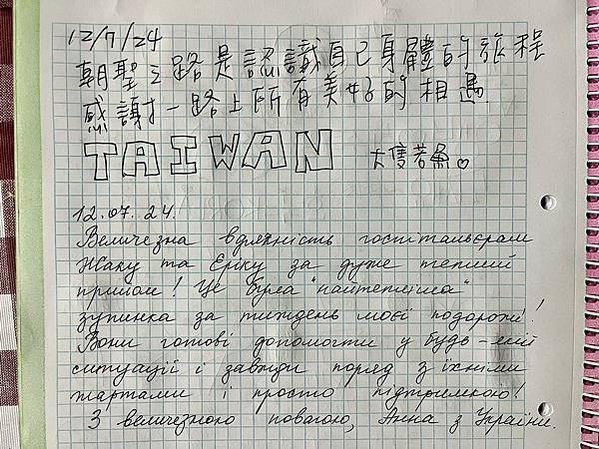 12/7/24
朝聖之路是認識自己身體的旅程
感謝一路上所有美好的相遇
TAIWAN 大隻若魚♡
12.07.24.
Величезна вдячність госпітальєрам
Жаку та Еріку за дуже теплий
прийом! Це була "найтепліша"
зупинка за тиждень моєї подорожі!
Вони готові допомогти у будь-якій
ситуації і завжди поряд з їхніми
жартами і просто підтримкою!
З величезною повагою, Анна з України.